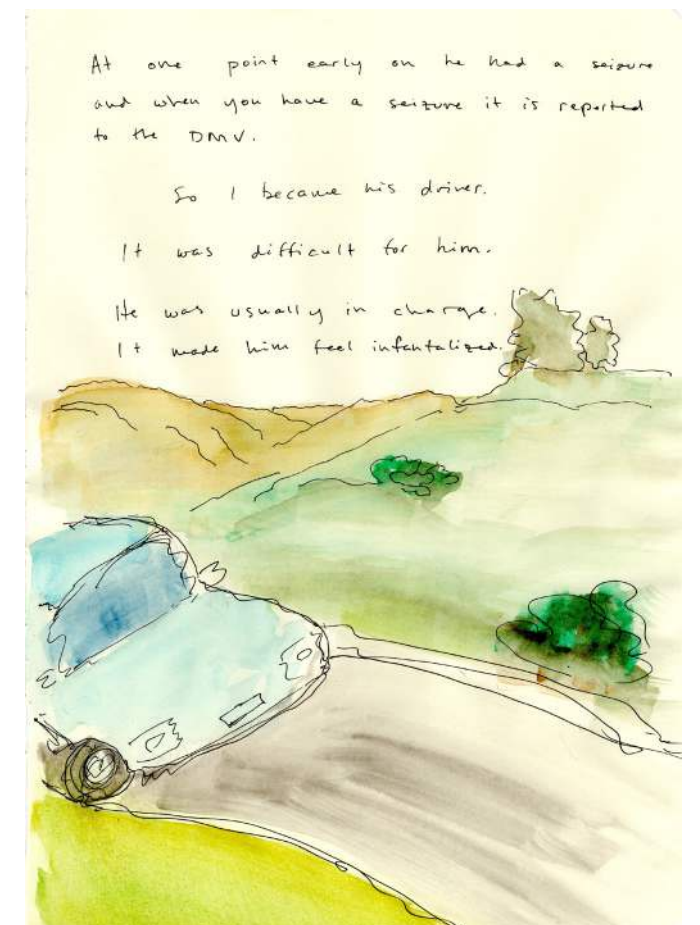 At one point early on he had a seizure
and when you have a seizure it is reported
to the DMV.
So I became his driver.
It was difficult for him.
He was usually in charge.
It made him feel infantalized.